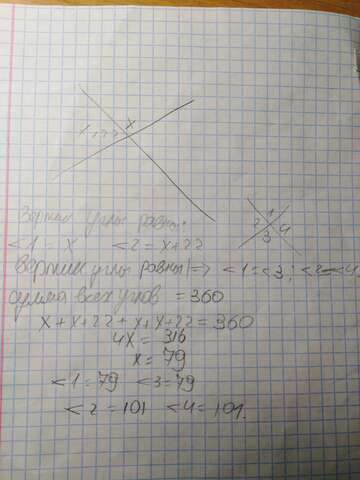 x
x+22
вертик углы равны:
1
2 4
3
<1 = x <2 = x+22
Вертик углы равны! => <1=<3; <2=<4
сумма всех углов = 360
x+x+22+x+x+22=360
4x = 316
x = 79
<1=79 <3=79
<2=101 <4=101.